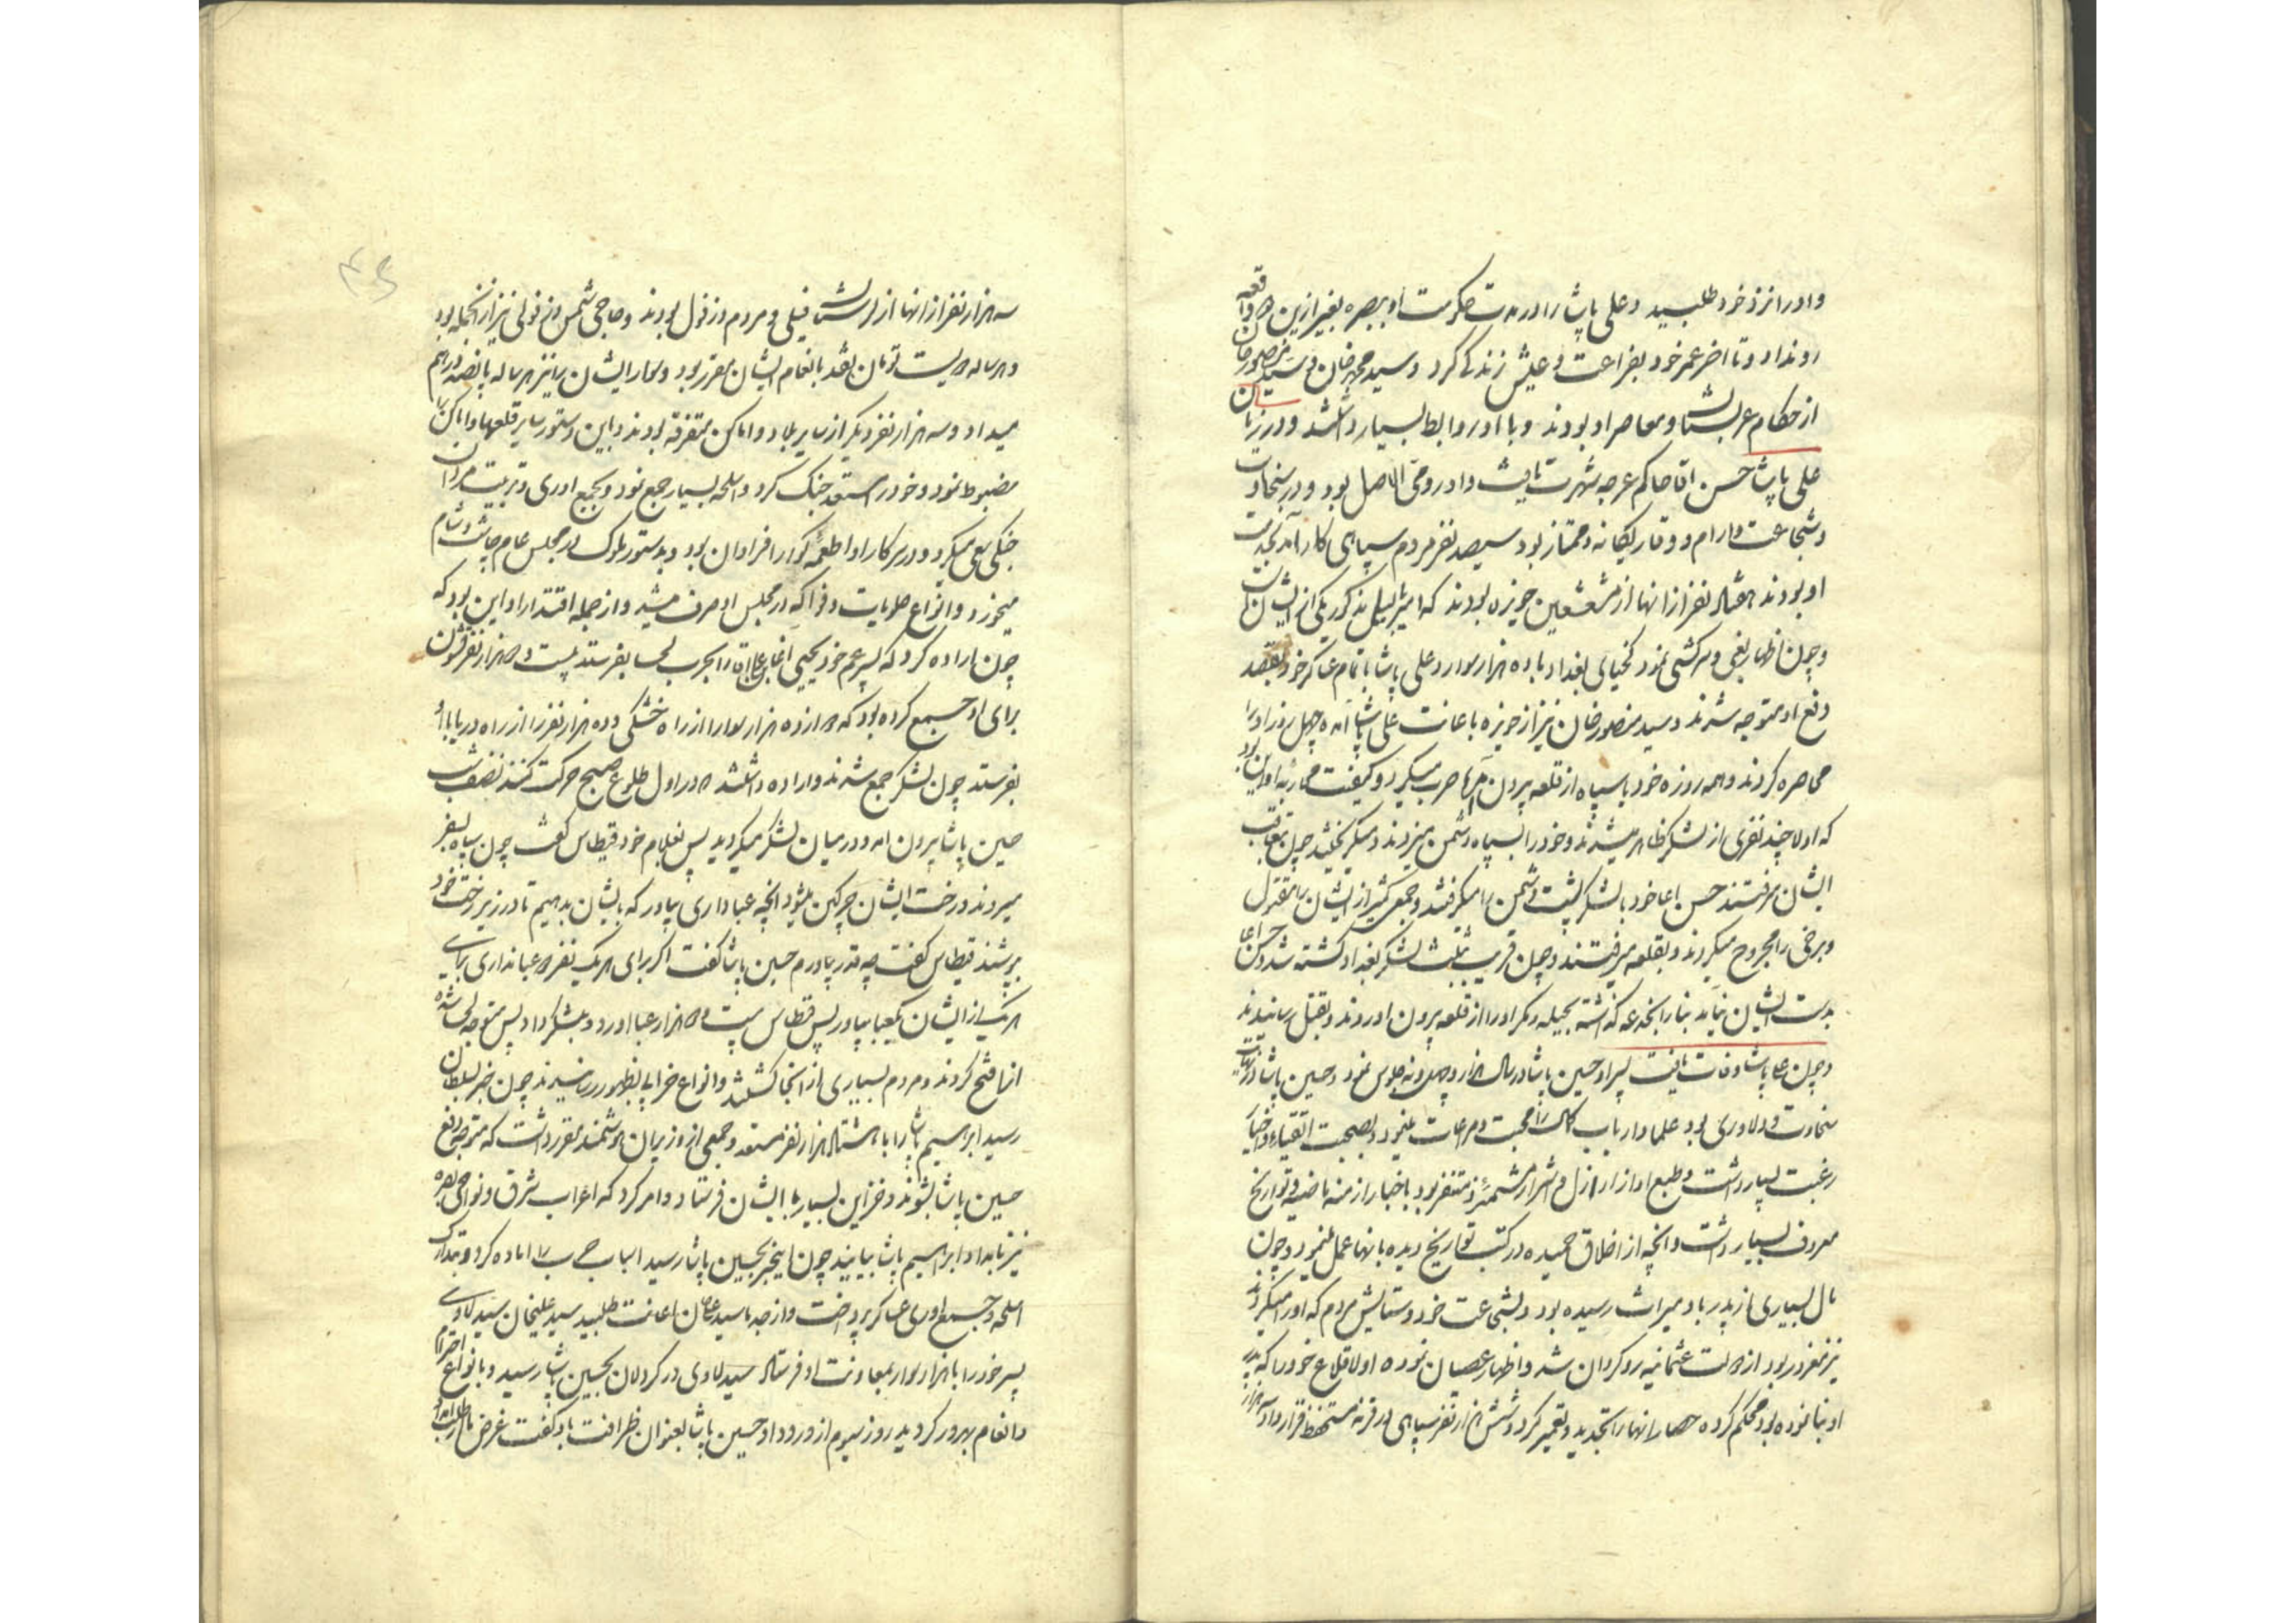 و او را نزد خود طلبید و علی پاشا را در مدت حکومت او ببصره بغیر ازین واقعه
رونداد و تا اخر عمر خود بفراغت و عیش زندگی کرد و سید محمد خان و سید منصور خان
از حکام عربستان و معاصر او بودند و با او روابط بسیار داشتند و در زمان
علی پاشا حسن اقا حاکم عرجه شهرت یافت و او رومی الاصل بود و در سخاوت
و شجاعت و ارام و وقار یکانه و ممتاز بود سیصد نفر مردم سپاهی کارامد بخدمت
او بودند هشتاد نفر از انها از مشعشعین حویزه بودند که امیر مذکور یکی از ایشان
و چون اظهار بغی و سرکشی نمود کخیای بغداد با ده هزار سوار و علی پاشا با تمام عساکر خود بقصد
دفع او متوجه شدند و سید منصور خان نیز از حویزه باعانت علی پاشا امده چهل روز او را
محاصره کردند و همه روزه خود با سپاه از قلعه بیرون حرب میکرد و کیفیت محاربه او این بود
که اولا چند نفری از لشکر ظاهر میشدند و خود را بسپاه دشمن میزدند و میکریختند چون بتعاقب
ایشان میرفتند حسن اغا خود با لشکر پشت دشمن را میکرفتند و جمعی کثیر از ایشان را مقتول
و برخی را مجروح میکردند و بقلعه میرفتند و چون قریب بثلث لشکر بغداد کشته شد و حسن اغا
بدست ایشان نیامد بنا را بخدعه کذاشته بحیله و مکر او را از قلعه بیرون اوردند و بقتل رسانیدند
و چون علی پاشا وفات یافت پسر او حسین پاشا در سال هزار و پنجاه و نه جلوس نمود و حسین پاشا در نهایت
سخاوت و دلاوری بود علما و ارباب کمال را محبت و مراعات مینمود و بصحبت اتقیاء و اخیار
رغبت بسیار داشت و طبع او از اراذل و اشرار مشمئز و متنفر بود باخبار ازمنه ماضیه و تواریخ
معروف بسیار داشت و انچه از اخلاق حمیده در کتب تواریخ دیده بانها عمل مینمود و چون
مال بسیاری از پدر باو میراث رسیده بود و بشجاعت خود و ستایش مردم که او را میکردند
نیز مغرور بود از دولت عثمانیه روکردان شد و اظهار عصیان نموده اولا قلاع خود را که پدر
او بنا نموده بود محکم کرده حصار انها را تجدید و تعمیر کرد و شش هزار نفر سپاهی در قرنه مستحفظ قرار داد
سه هزار نفر از انها از لرستان فیلی و مردم دزفول بودند و حاجی شمس دزفولی نیز از انجمله بود
و هر ساله دویست تومان نقد بانعام ایشان مقرر بود و سوار ایشان را نیز هر ساله پانصد درهم
میداد و سه هزار نفر دیکر از سایر بلاد و اماکن متفرقه بودند و باین دستور سایر قلعها و اماکن را
مضبوط نمود و خود را مستعد جنک کرد و اسلحه بسیار جمع نمود و بجمع اوری و تربیت مردان
جنکی سعی میکرد و در سرکار او اطعمه کوارا فراوان بود و بدستور ملوک در مجلس عام چاشت و شام
میخورد و انواع حلویات و فواکه در مجلس او صرف میشد و از جمله اقتدار او این بود که
چون اراده کرد که پسر عم خود یحیی اغا را بحرب لحسا بفرستد بیست و دو هزار نفر قشون
برای او جمع کرده بود که دوازده هزار سوار را از راه خشکی و ده هزار نفر را از راه دریا باو
بفرستد چون لشکر جمع شدند و اراده داشتند در اول طلوع صبح حرکت کنند نصف شب
حسین پاشا بیرون امد و در میان لشکر میکردید پس بغلام خود قیطاس کفت چون سپاه بسفر
میروند و رخت ایشان چرکین میشود انچه عبا داری بیاور که بایشان بدهیم تا در زیر رخت خود
بپوشند قیطاس کفت چه قدر بیاورم حسین پاشا کفت اکر برای هر یک نفر دو عبا نداری برای
هر یک از ایشان یک عبا بیاور پس قیطاس بیست و دو هزار عبا اورد و بلشکر داد پس متوجه لحسا شده
انرا فتح کردند و مردم بسیاری از انجا کشتند و انواع خرابی بظهور رسانیدند چون خبر بسلطان
رسید ابراهیم پاشا را با هشتاد هزار نفر مستعد و جمعی از وزیران هوشمند مقرر داشت که متوجه دفع
حسین پاشا بشوند و خزاین بسیار با ایشان فرستاد و امر کرد که اعراب شرق و نواحی بصره
نیز بامداد ابراهیم پاشا بیایند چون اینخبر بحسین پاشا رسید اسباب حرب را اماده کرد و بتدارک
اسلحه و جمع اوری عساکر پرداخت و از جد ما سید علیخان اعانت طلبید سید علیخان سید لاوی
پسر خود را با هزار سوار بمعاونت او فرستاد سید لاوی در کردلان بحسین پاشا رسید و بانواع احترام
و انعام بهرور کردید روز سیوم از ورود او حسین پاشا بعنوان ظرافت باو کفت غرض ما از طلب امداد